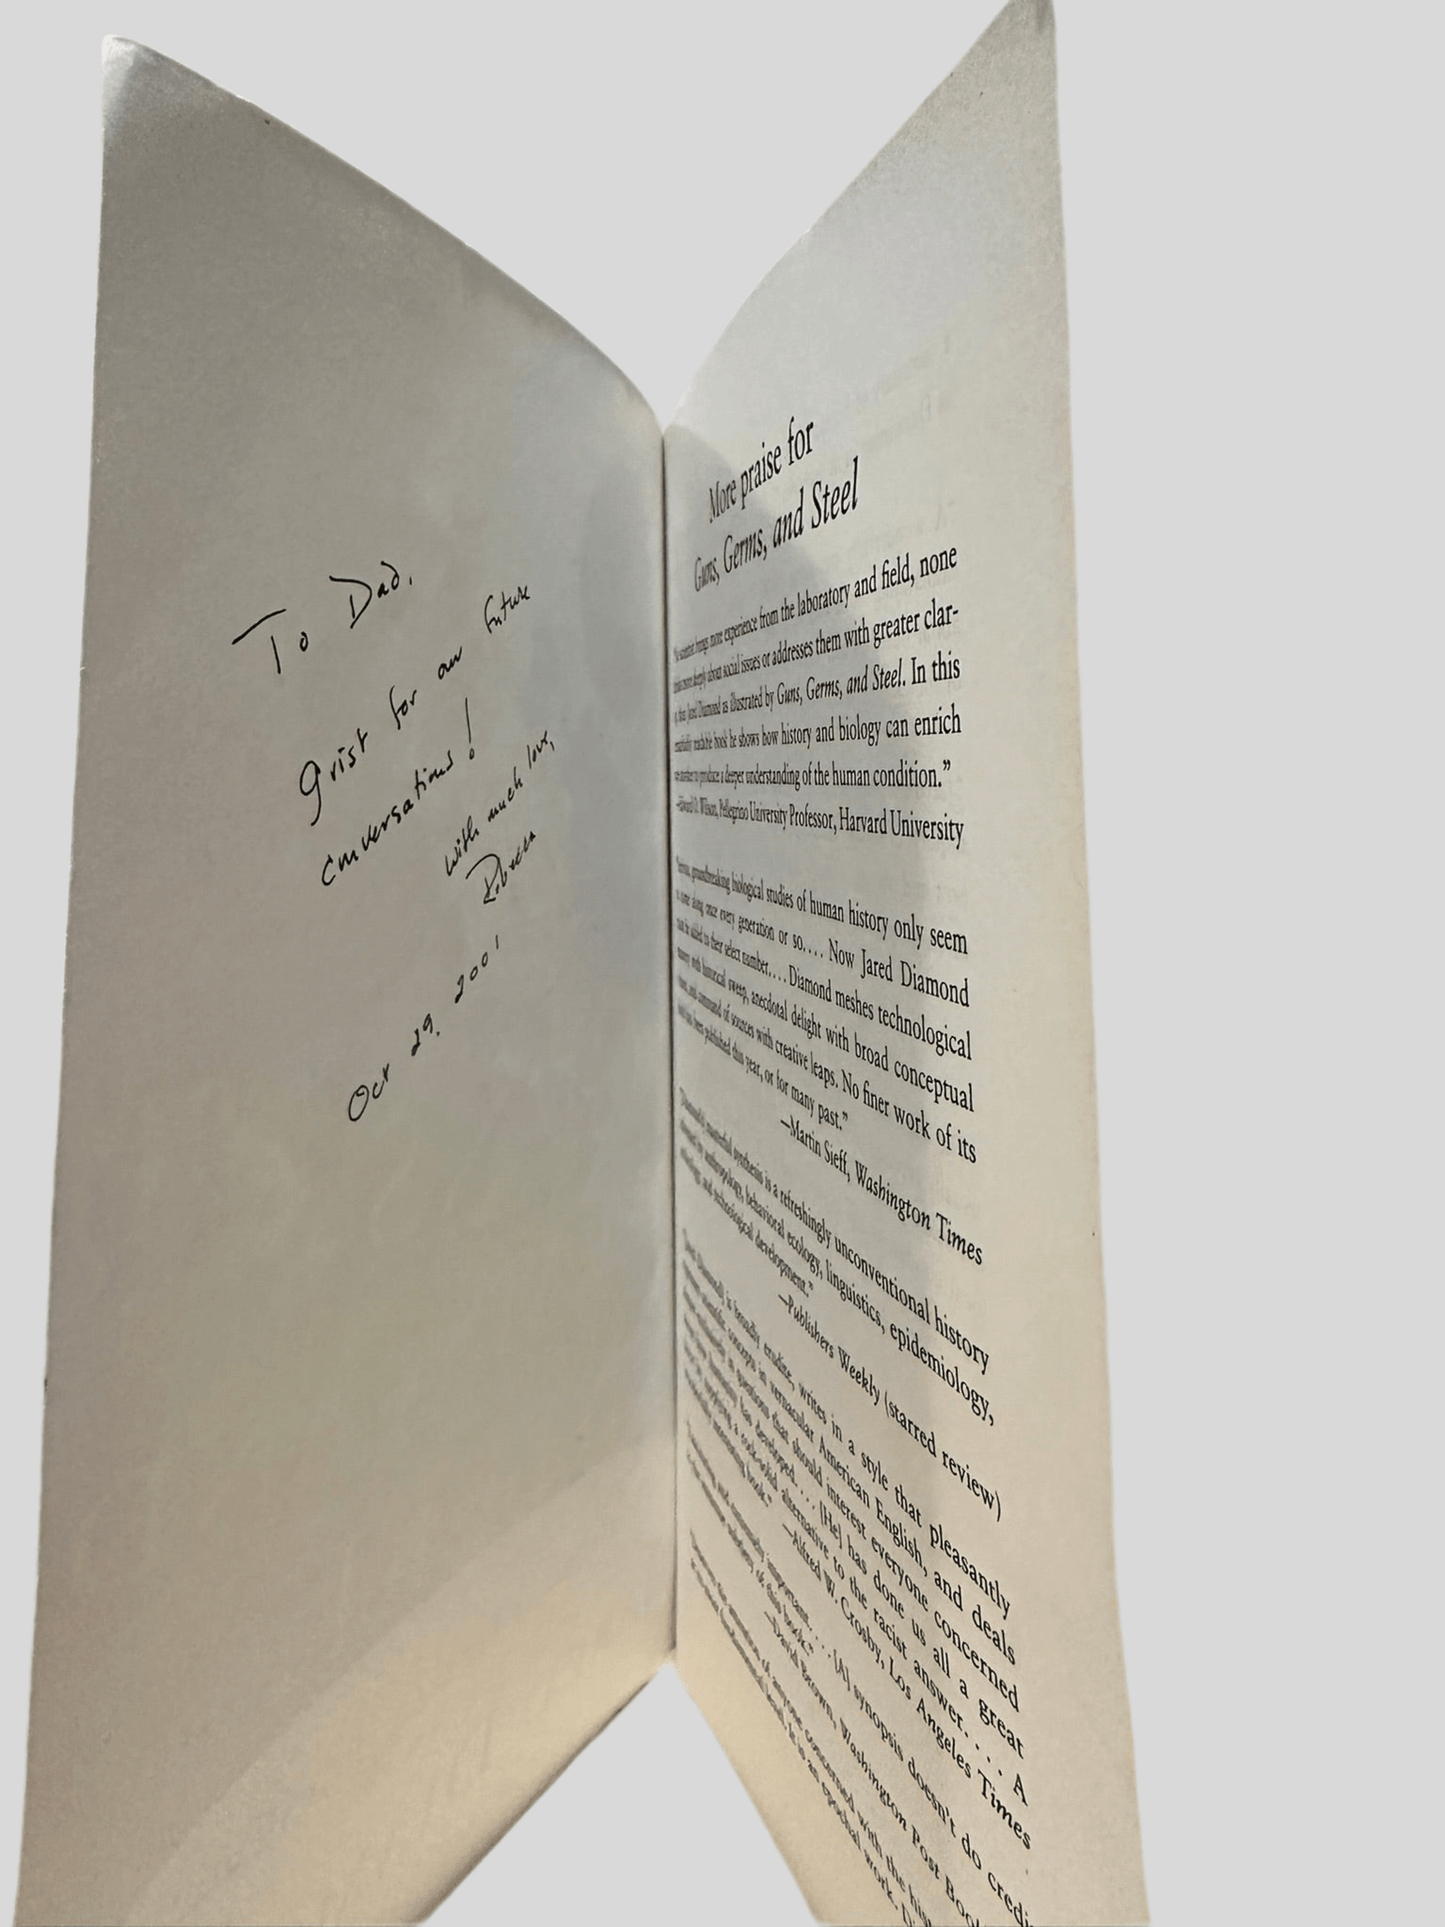 To Dad,
Grist for our future
conversations!
with much love,
Rebecca
Oct 29, 2001
More praise for
Guns, Germs, and Steel
scientist brings more experience from the laboratory and field, none
more deeply about social issues or addresses them with greater clar-
than Jared Diamond as illustrated by Guns, Germs, and Steel. In this
readable book he shows how history and biology can enrich
to produce a deeper understanding of the human condition.”
—Edward O. Wilson, Pellegrino University Professor, Harvard University
groundbreaking biological studies of human history only seem
to come along once every generation or so. . . . Now Jared Diamond
must be added to their select number. . . . Diamond meshes technological
mastery with historical sweep, anecdotal delight with broad conceptual
and command of sources with creative leaps. No finer work of its
has been published this year, or for many past.”
—Martin Sieff, Washington Times
masterful synthesis is a refreshingly unconventional history
by anthropology, behavioral ecology, linguistics, epidemiology,
and technological development.”
—Publishers Weekly (starred review)
is broadly erudite, writes in a style that pleasantly
scientific concepts in vernacular American English, and deals
in questions that should interest everyone concerned
has developed. . . . [He] has done us all a great
a rock-solid alternative to the racist answer. . . . A
interesting book.”
—Alfred W. Crosby, Los Angeles Times
important. . . . [A] synopsis doesn’t do credit
of this book.”
—David Brown, Washington Post Book
of anyone concerned with the
it is an epochal work.